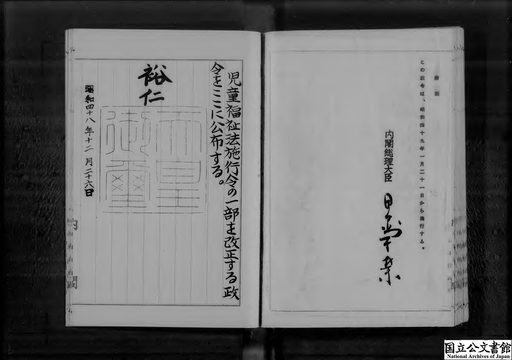 附則
この政令は、昭和四十九年一月二十一日から施行する。
内閣総理大臣
児童福祉法施行令の一部を改正する政
令をここに公布する。
裕仁
天皇
御璽
昭和四十八年十二月二十六日
国立公文書館
National Archives of Japan